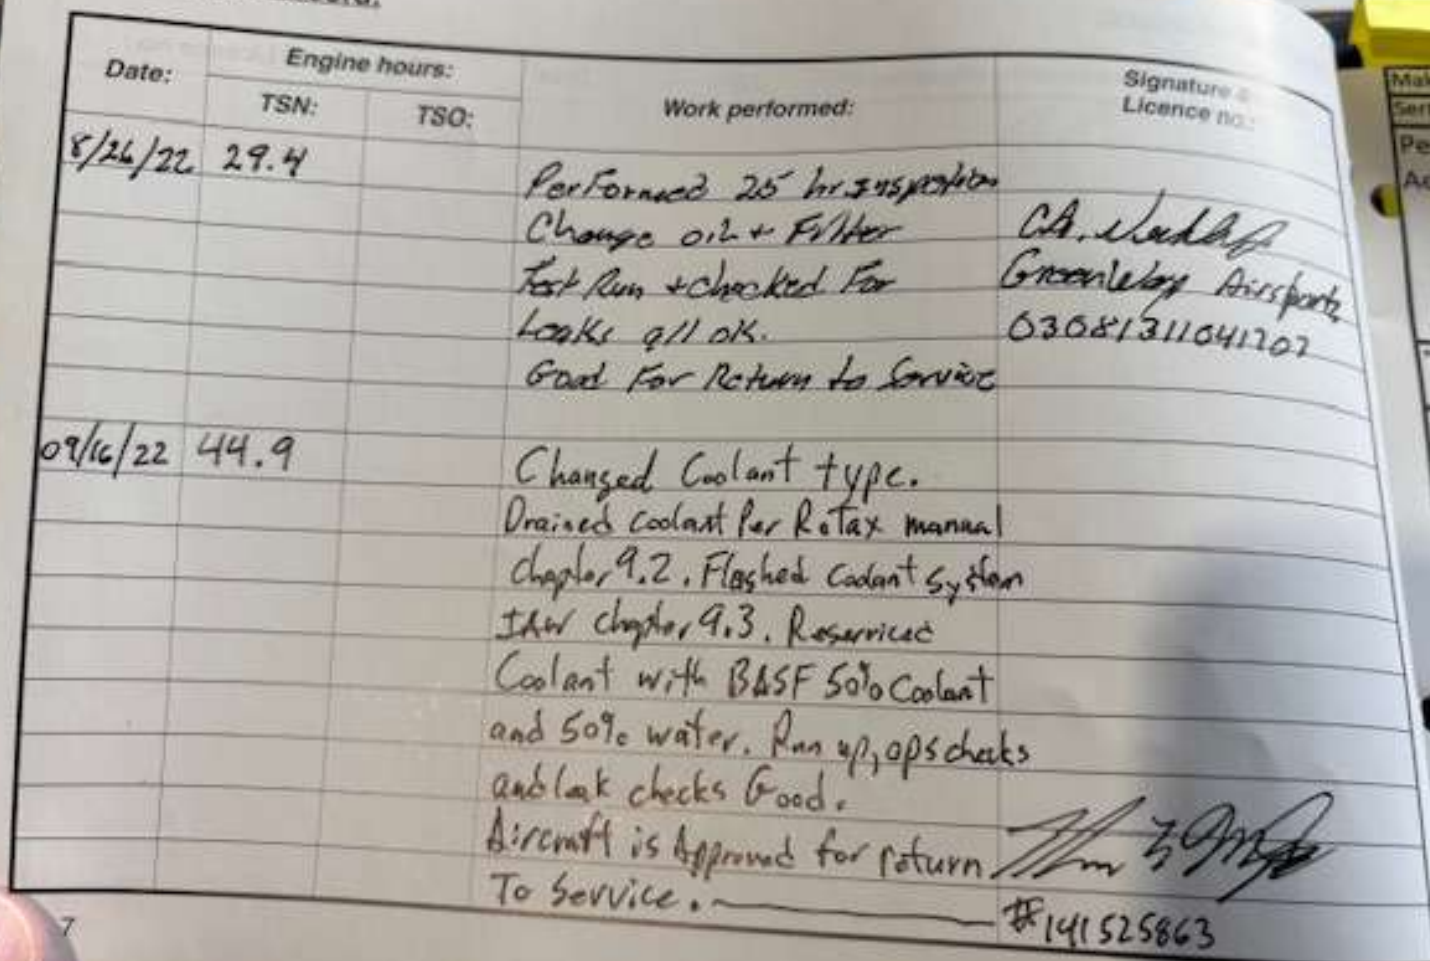 Date:
Engine hours:
TSN:
TSO:
Work performed:
Signature &
Licence no.:
8/26/22 29.4
Performed 25 hr. inspection
Change oil + Filter
Test Run + checked For
Leaks all ok.
Good For Return to Service
Greenleby Airsports
03081311041707
09/16/22 44.9
Changed Coolant type.
Drained coolant Per Rotax manual
chapter 9.2. Flushed Coolant System
IAW chapter 9.3. Reserviced
Coolant with BASF 50% Coolant
and 50% water. Run up, ops checks
and leak checks Good.
Aircraft is Approved for return
To Service.
#141525863
7
Mak
Seri
Pe
Ac